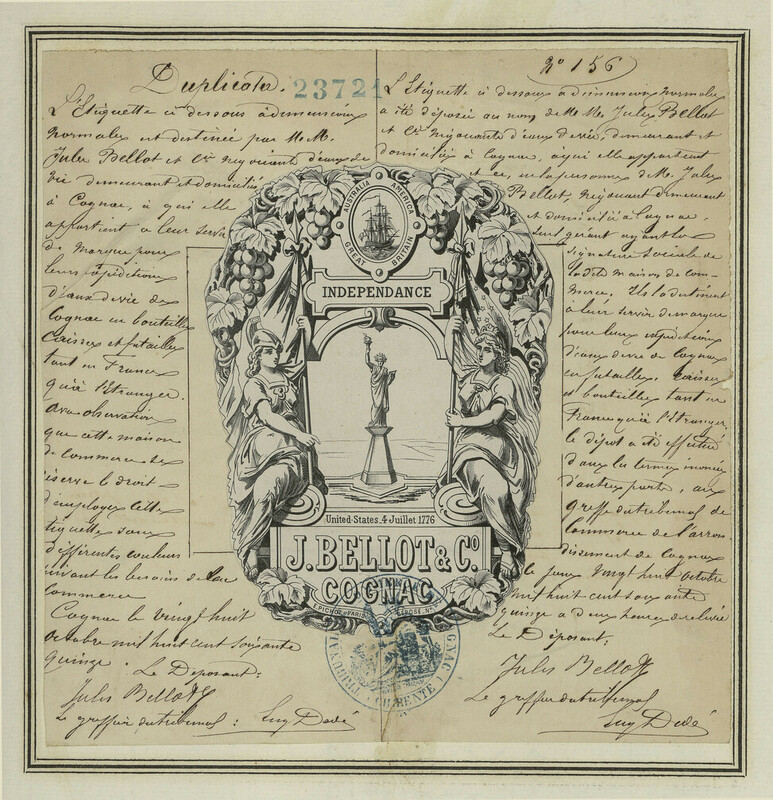 Duplicata.
23721
L'Etiquette ci dessous à dimensions
normales est destinée par M.M.
Jules Bellot et Cie négociants d'eaux de
vie demeurant et domiciliés
à Cognac, à qui elle
appartient a leur servir
de marque pour
leurs expéditions
d'eaux de vie de
Cognac en bouteilles
caisses et futailles
tant en France
qu'à l'Etranger.
avec observation
que cette maison
de commerce se
réserve le droit
d'employer cette
étiquette sous
différentes couleurs
suivant les besoins de leur
commerce
Cognac le vingt huit
octobre mil huit cent soixante
quinze. Le Déposant:
Jules Bellot
Le greffier du tribunal: Eug Dedé
No 156
L'Etiquette ci dessous à dimensions normales
a été déposée au nom de M.M. Jules Bellot
et Cie négociants d'eaux de vie, demeurant et
domiciliés à Cognac, à qui elle appartient
et ce, en la personne de M. Jules
Bellot, négociant demeurant
et domicilié à Cognac,
seul gérant ayant la
signature sociale de
la dite maison de com-
merce. Ils la destinent
à leur servir de marque
pour leurs expéditions
d'eaux de vie de Cognac
en futailles, caisses
et bouteilles tant en
France qu'à l'Etranger.
le dépôt a été effectué
dans les termes
d'autre part, au
greffe du tribunal de
Commerce de l'arron-
dissement de Cognac
le jeudi vingt huit octobre
mil huit cent soixante
quinze a deux heures de relevée
Le Déposant:
Jules Bellot
Le greffier du tribunal
Eug Dedé
AUSTRALIA AMERICA
GREAT BRITAIN
INDEPENDANCE
United-States. 4 Juillet 1776
J. BELLOT & Co
COGNAC
F. PICHOT PARIS DÉPOSÉ. No
COGNAC
CHARENTE